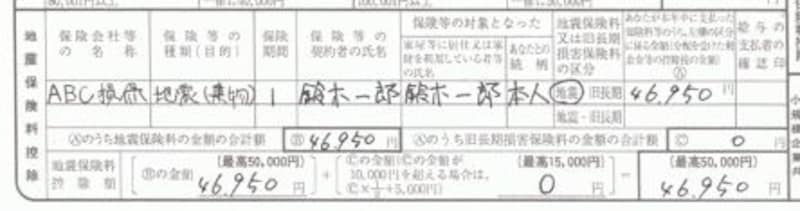 80,001円以上
100,001円以上
地震保険料控除
保険会社等の名称
保険等の種類(目的)
保険期間
保険等の契約者の氏名
保険等の対象となった
家屋等に居住又は家財を利用している者等の氏名
あなたとの続柄
地震保険料又は旧長期損害保険料の区分
あなたが本年中に支払った保険料等のうち、左欄の区分に係る金額(分配を受けた剰余金等の控除後の金額)
Ⓐ
給与の支払者の確認印
ABC損保 地震(建物) 1 鈴木一郎 鈴木一郎 本人 地震・旧長期 46,950 円
地震・旧長期
Ⓐのうち地震保険料の金額の合計額 Ⓑ 46,950 円 Ⓐのうち旧長期損害保険料の金額の合計額 Ⓒ 0 円
地震保険料控除額
Ⓑの金額
(最高50,000円)
46,950 円
+
Ⓒの金額(Ⓒの金額が10,000円を超える場合は、Ⓒ×1/2+5,000円)
(最高15,000円)
0 円
=
(最高50,000円)
46,950 円
小規模企業共